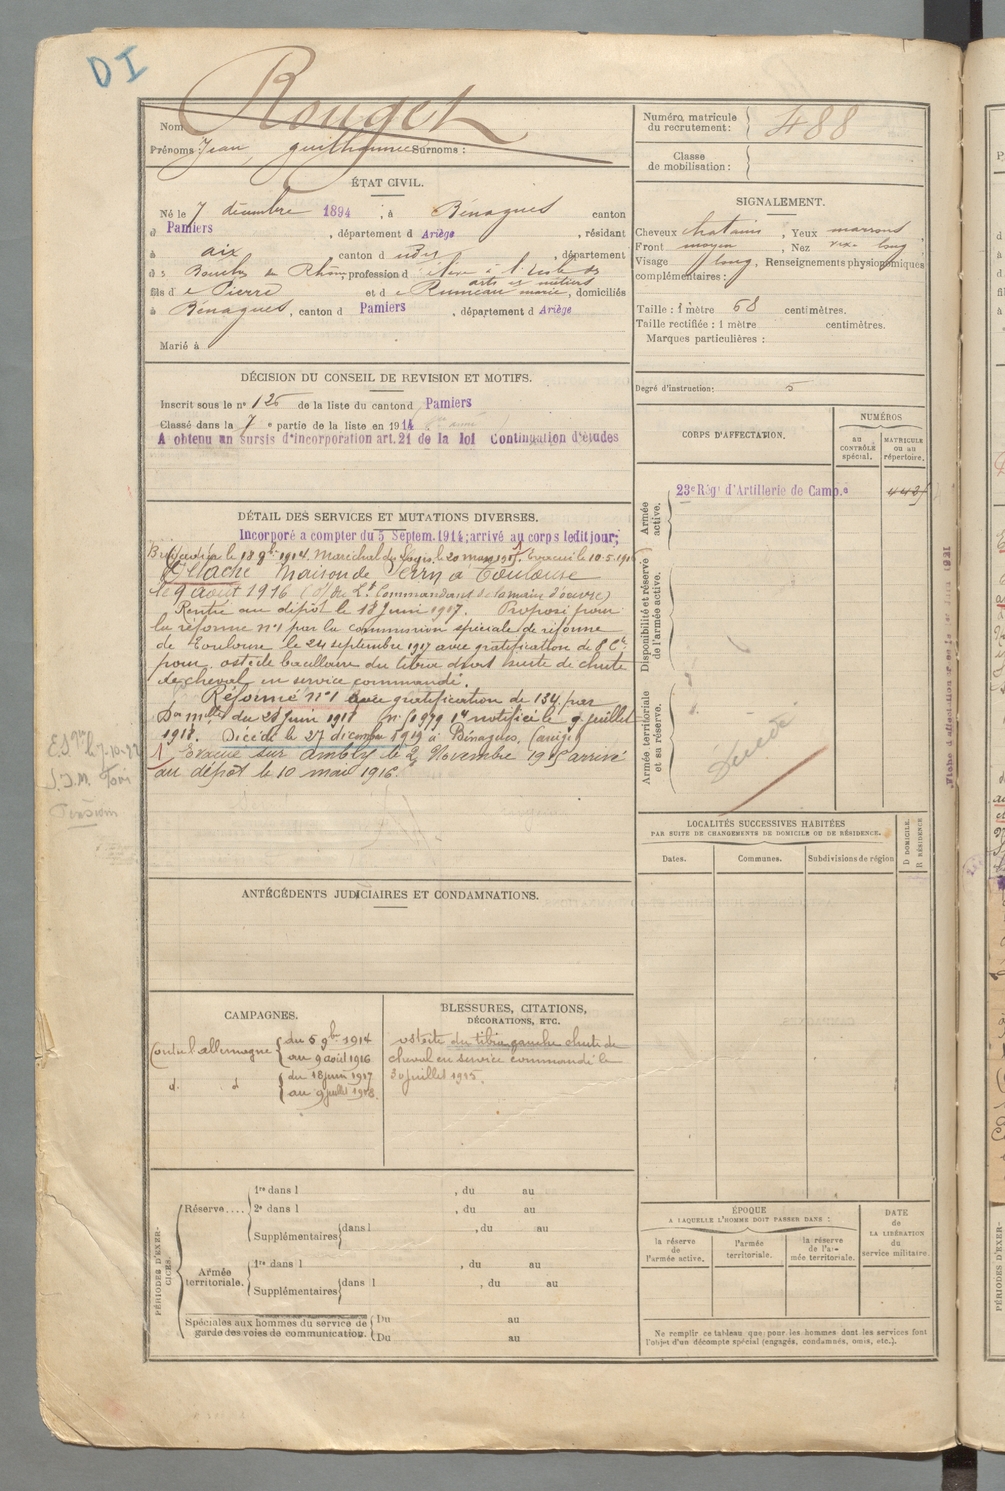 DI
Rouget
Nom
Prénoms : Jean, guilhaume Surnoms :
Numéro matricule
du recrutement :
488
Classe
de mobilisation :
ÉTAT CIVIL.
Né le 7 décembre 1894, à Bénagues canton
d Pamiers, département d Ariège, résidant
à aix, canton d udit, département
d s Bouches du Rhône, profession d élève à l'école des
arts et métiers
fils d e Pierre et d e Rumeau marie, domiciliés
à Bénagues, canton d Pamiers, département d Ariège
Marié à
SIGNALEMENT.
Cheveux chatains, Yeux marrons
Front moyen, Nez long
Visage long, Renseignements physionomiques
complémentaires :
Taille : 1 mètre 68 centimètres.
Taille rectifiée : 1 mètre centimètres.
Marques particulières :
Degré d'instruction : 5
DÉCISION DU CONSEIL DE REVISION ET MOTIFS.
Inscrit sous le n° 125 de la liste du canton d Pamiers
Classé dans la 7 e partie de la liste en 1914
A obtenu un sursis d'incorporation art. 21 de la loi Continuation d'études
DÉTAIL DES SERVICES ET MUTATIONS DIVERSES.
Incorporé a compter du 5 Septem. 1914; arrivé au corps ledit jour;
Brigadier le 18 9bre 1914. Maréchal des logis le 20 mars 1915. Evacué le 10.5.1916
Détaché Maison de Verry à Toulouse
le 9 août 1916 (d/ du Lt Commandant de la main d'oeuvre)
Rentré au dépôt le 18 Juin 1917. Proposé pour
la réforme n°1 par la commission spéciale de réforme
de Toulouse le 24 septembre 1917 avec gratification de 8e Cie
pour ostéite bacillaire du tibia droit suite de chute
de cheval en service commandé.
Réformé n°1 avec gratification de 134 par
Don mlle du 28 Juin 1918 notifiée le 9 juillet
1918. Décédé le 27 décembre 1919 à Bénagues. (ariège)
1 Evacué sur Ambly le 2 Novembre 1915 arrivé
au dépôt le 10 mai 1916.
CORPS D'AFFECTATION.
NUMÉROS
au
CONTRÔLE
spécial.
MATRICULE
OU AU
répertoire.
Armée
active.
23e Régt d'Artillerie de Camp.e
Disponibilité et réserve
de l'armée active.
Armée territoriale
et sa réserve.
Décédé
LOCALITÉS SUCCESSIVES HABITÉES
PAR SUITE DE CHANGEMENTS DE DOMICILE OU DE RÉSIDENCE.
Dates.
Communes.
Subdivisions de région
D DOMICILE.
R RÉSIDENCE
ANTÉCÉDENTS JUDICIAIRES ET CONDAMNATIONS.
CAMPAGNES.
Contre l'allemagne du 5 9bre 1914
au 9 août 1916
d. d du 18 juin 1917
au 9 juillet 1918.
BLESSURES, CITATIONS,
DÉCORATIONS, ETC.
ostéite du tibia gauche chute de
cheval en service commandé le
30 juillet 1915.
PÉRIODES D'EXER-
CICES.
Réserve....
1re dans l , du au
2e dans l , du au
Supplémentaires dans l , du au
Armée
territoriale.
1re dans l , du au
Supplémentaires dans l , du au
Spéciales aux hommes du service de
garde des voies de communication.
Du au
Du au
ÉPOQUE
A LAQUELLE L'HOMME DOIT PASSER DANS :
la réserve
de
l'armée active.
l'armée
territoriale.
la réserve
de l'ar-
mée territoriale.
DATE
de
LA LIBÉRATION
du
service militaire.
Ne remplir ce tableau que pour les hommes dont les services font
l'objet d'un décompte spécial (engagés, condamnés, omis, etc.).